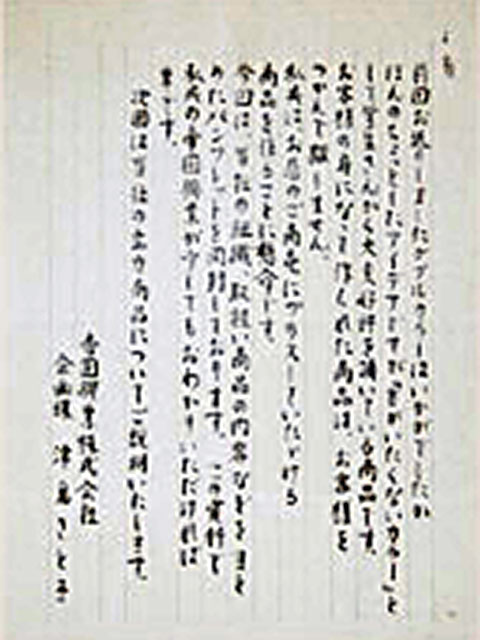 前回お送りしましたダブルカラーはいかがでしたか
ほんのちょっとしたアイデアですが「首がいたくないカラー」と
して皆さんから大変好評を頂いている商品です。
お客様の身になって作られた商品は、お客様を
つかんで離しません。
私共は、お店のご商売にプラスしていただける
商品を作ることに懸命です。
今回は、当社の組織、取扱い商品の内容などをまと
めたパンフレットを同封しております。この資料で
私共の帝国興業が少しでもおわかりいただければ
幸いです。
次回は当社の主力商品についてご説明いたします。
帝国興業株式会社
企画係 津島さと子